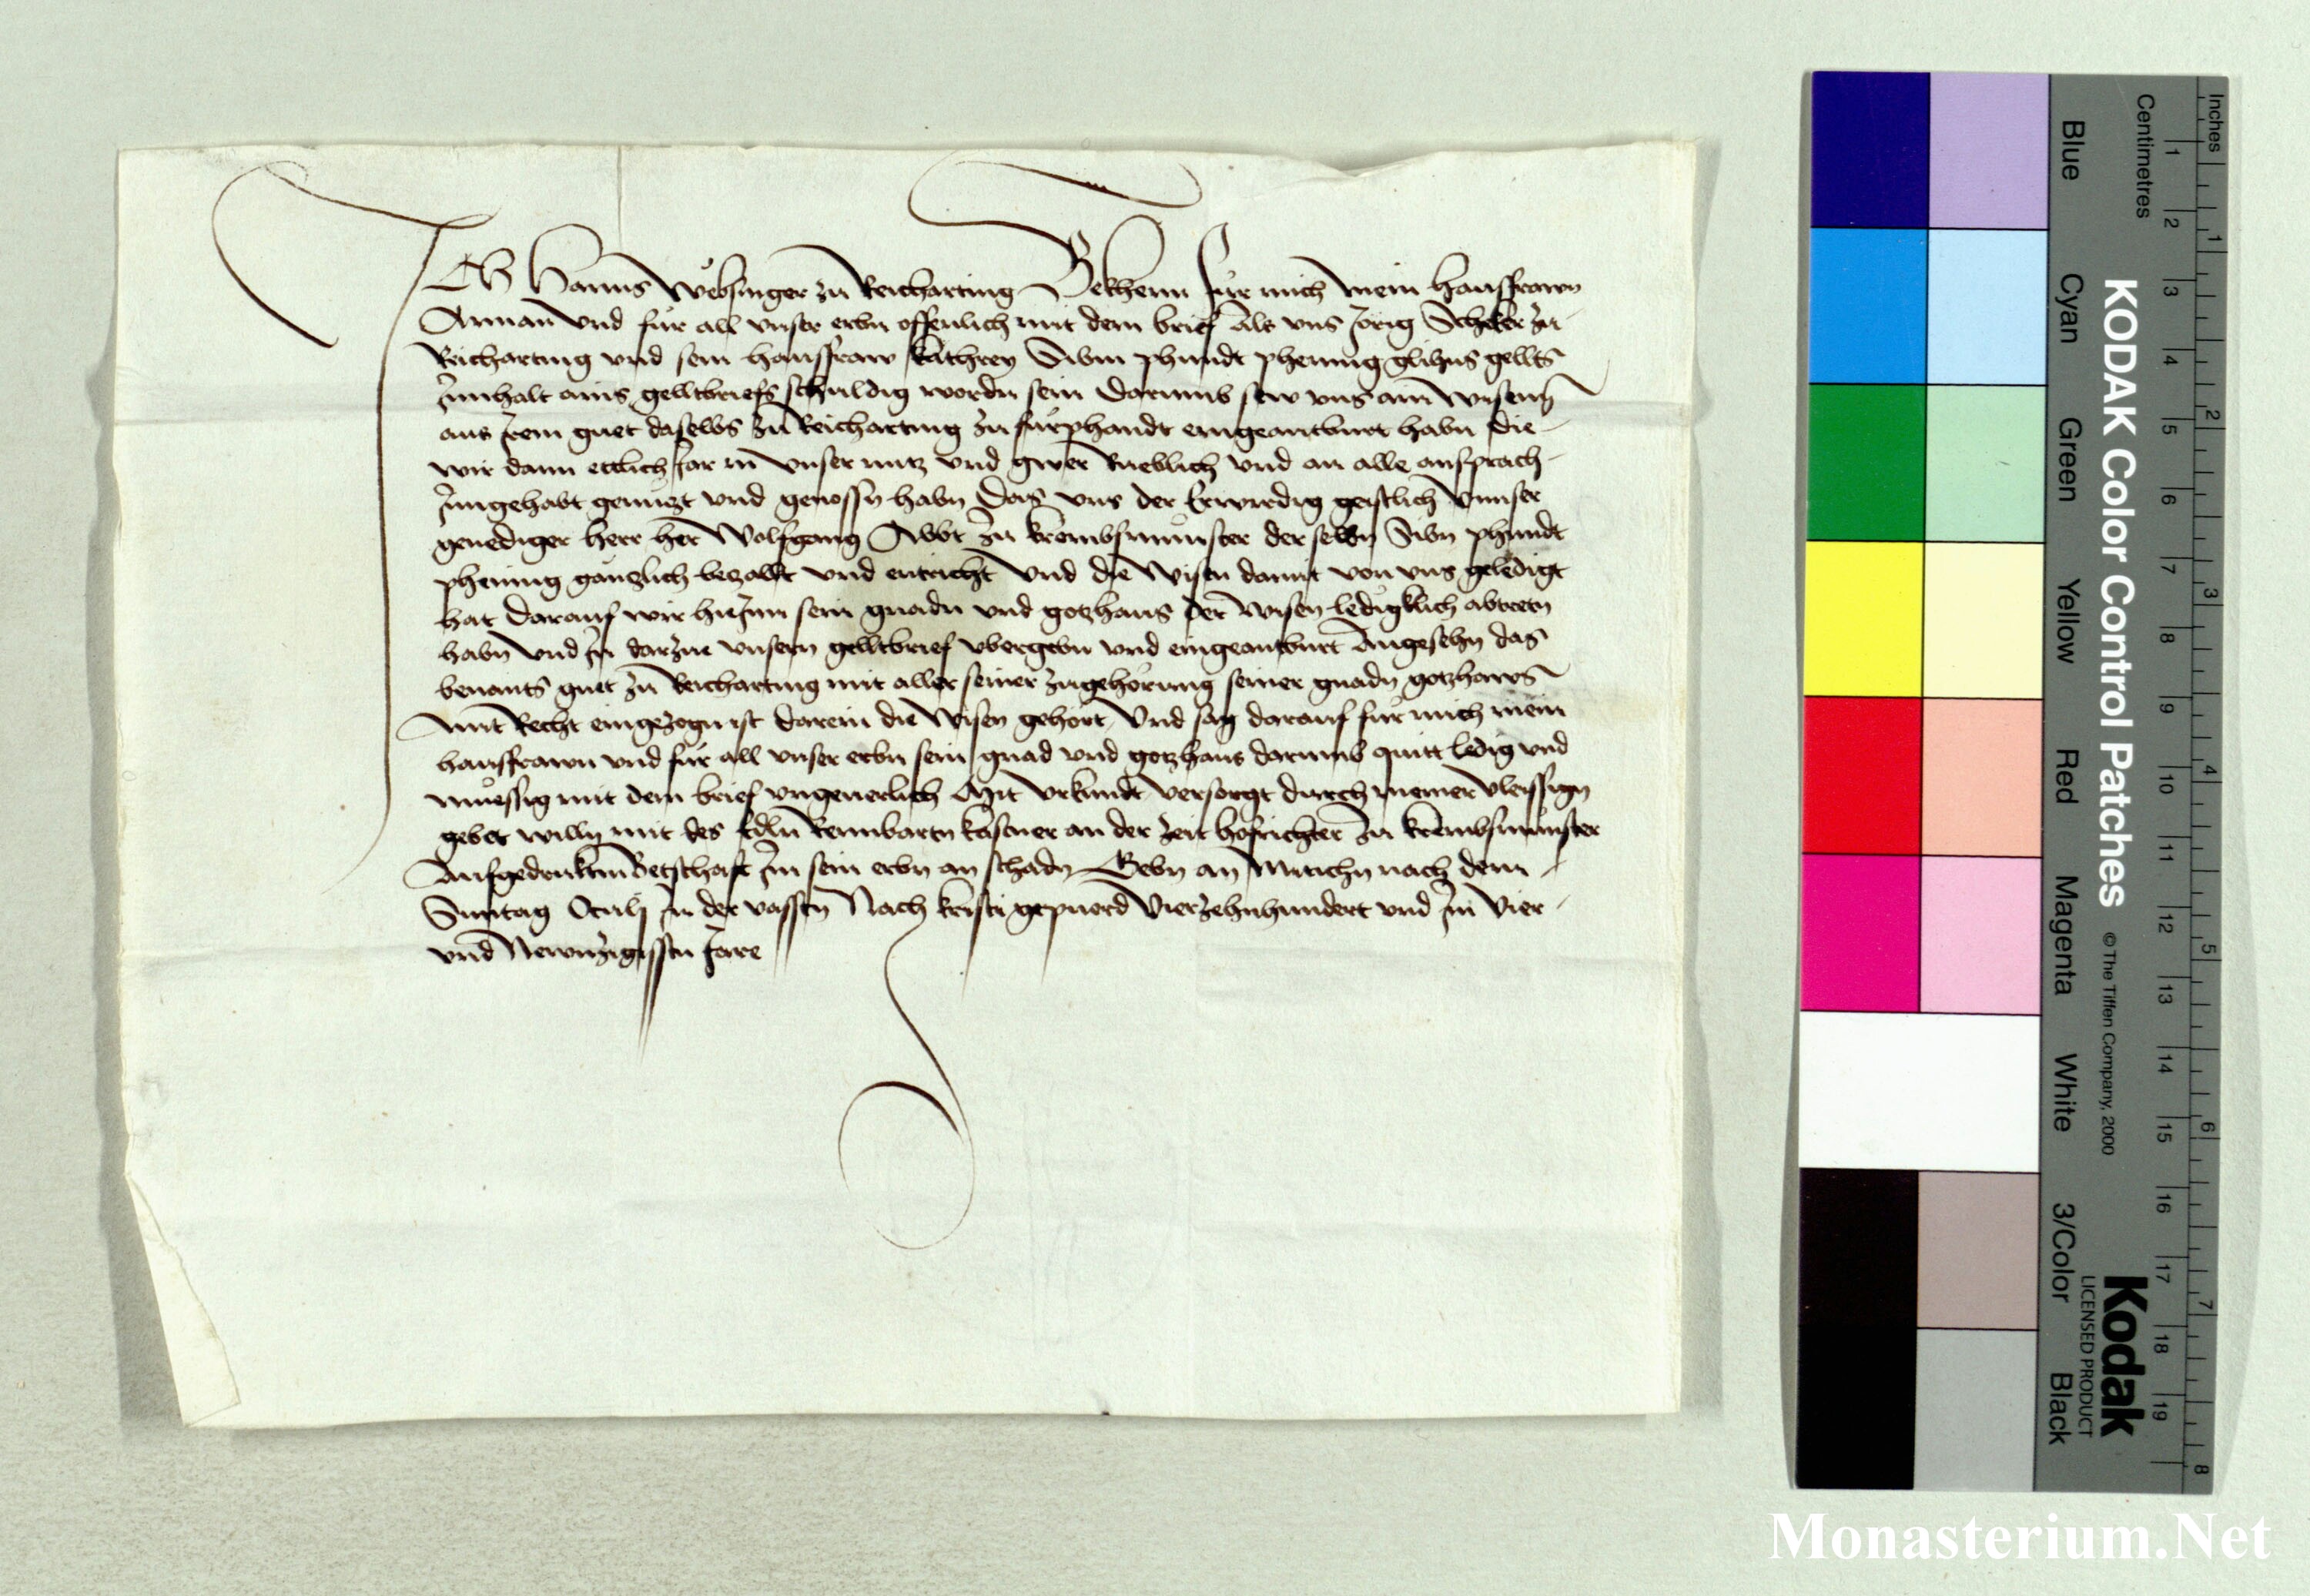 Ich Hanns Websinger zu Reicharting Bekhenn für mich mein hausfrawn
Annan Vnd für all vnser erbn offenlich mit dem brief Als vns Jörig Scheker zu
Reicharting vnd sein hausfraw kathrey Sibm phundt phennig glihns gellts
Innhalt ains gelltbriefs schuldig wordn sein Darumb sew vns ain Wisenn
aus Irem guet daselbs zu Reicharting zu fürphandt eingeantburt habn Die
wir dann ettlich Jar in vnser nutz vnd gwer Rueblich vnd an alle ansprach
Inngehabt genutzt vnd genossn habn Das vns der Erwirdig geistlich Vnnser
genediger herr her Wolfgang Abbt zu krembsmünster derselbn Sibn phundt
phening gänzlich bezallt vnd entricht Vnd die Wisen damit von vns geledigt
hat Darauf wir hieInn sein gnadn vnd gotzhaus der Wisen ledigklich abtretn
habn Vnd In darzue vnsern gelltbrief vbergebn vnd eingeantburt Angesehn das
benants guet zu Reicharting mit aller seiner zugehörung seiner gnadn gotzhaws
mit Recht eingezogn ist darein die Wisen gehört Vnd sag darauf für mich mein
hausfrawn vnd für all vnser erbn sein gnad vnd gotzhaus darumb quitt ledig vnd
müessig mit dem brief vngeuerlich Mit Vrkundt Versorgt durch meiner Vleissign
gebet willn mit des Edln Rennbartn kastner an der zeit hofrichter zu krembsmünster
Aufgedruktm Betschaft Im sein erbn an schadn Gebn an Mitichn nach dem
Suntag Oculj In der vasstn Nach kristi gepuerd Vierzehnhundert vnd Im Vier
vnd Newnzigisstn Jare
Inches
Centimetres
KODAK Color Control Patches
© The Tiffen Company, 2000
Kodak
LICENSED PRODUCT
Blue
Cyan
Green
Yellow
Red
Magenta
White
3/Color
Black
1 2 3 4 5 6 7 8 9 10 11 12 13 14 15 16 17 18 19
1 2 3 4 5 6 7 8
Monasterium.Net